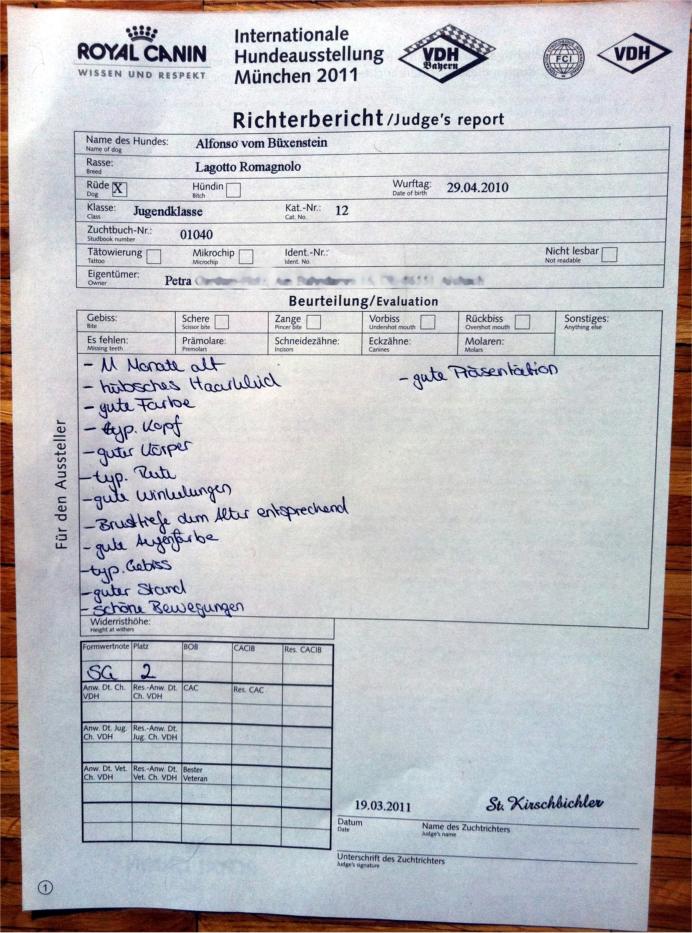 ROYAL CANIN
WISSEN UND RESPEKT
Internationale
Hundeausstellung
München 2011
VDH
Bayern
FCI
VDH
Richterbericht /Judge's report
Name des Hundes: Alfonso vom Büxenstein
Name of dog
Rasse: Lagotto Romagnolo
Breed
Rüde X Hündin Wurftag: 29.04.2010
Dog Bitch Date of birth
Klasse: Jugendklasse Kat.-Nr.: 12
Class Cat. No.
Zuchtbuch-Nr.: 01040
Studbook number
Tätowierung Mikrochip Ident.-Nr.: Nicht lesbar
Tattoo Microchip Ident. No. Not readable
Eigentümer: Petra
Owner
Beurteilung/Evaluation
Gebiss: Schere Zange Vorbiss Rückbiss Sonstiges:
Bite Scissor bite Pincer bite Undershot mouth Overshot mouth Anything else
Es fehlen: Prämolare: Schneidezähne: Eckzähne: Molaren:
Missing teeth Premolars Incisors Canines Molars
- 11 Monate alt
- hübsches Haarkleid - gute Präsentation
- gute Farbe
- typ. Kopf
- guter Körper
- typ. Rute
- gute Winkelungen
- Brusttiefe dem Alter entsprechend
- gute Augenfarbe
- typ. Gebiss
- guter Stand
- schöne Bewegungen
Für den Aussteller
Widerristhöhe:
Height at withers
Formwertnote Platz BOB CACIB Res. CACIB
SG 2
Anw. Dt. Ch. Res.-Anw. Dt. CAC Res. CAC
VDH Ch. VDH
Anw. Dt. Jug. Res.-Anw. Dt.
Ch. VDH Jug. Ch. VDH
Anw. Dt. Vet. Res.-Anw. Dt. Bester
Ch. VDH Vet. Ch. VDH Veteran
19.03.2011 St. Kirschbichler
Datum Name des Zuchtrichters
Date Judge's name
Unterschrift des Zuchtrichters
Judge's signature
1